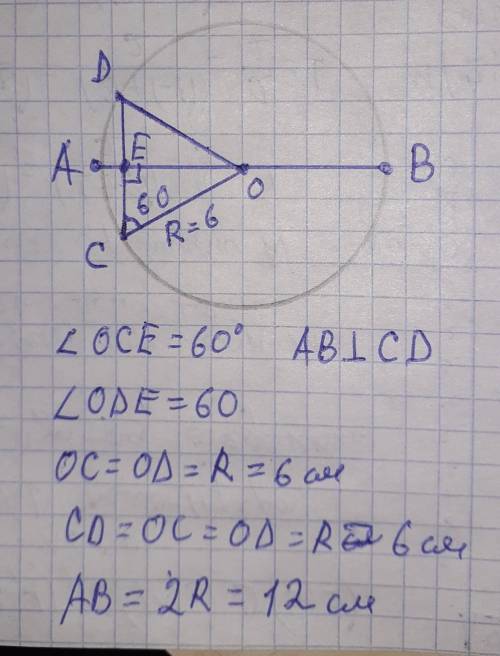 D
A E O B
60
R=6
C
∠OCE=60° AB⊥CD
∠ODE=60
OC=OD=R=6 см
CD=OC=OD=R=6 см
AB=2R=12 см